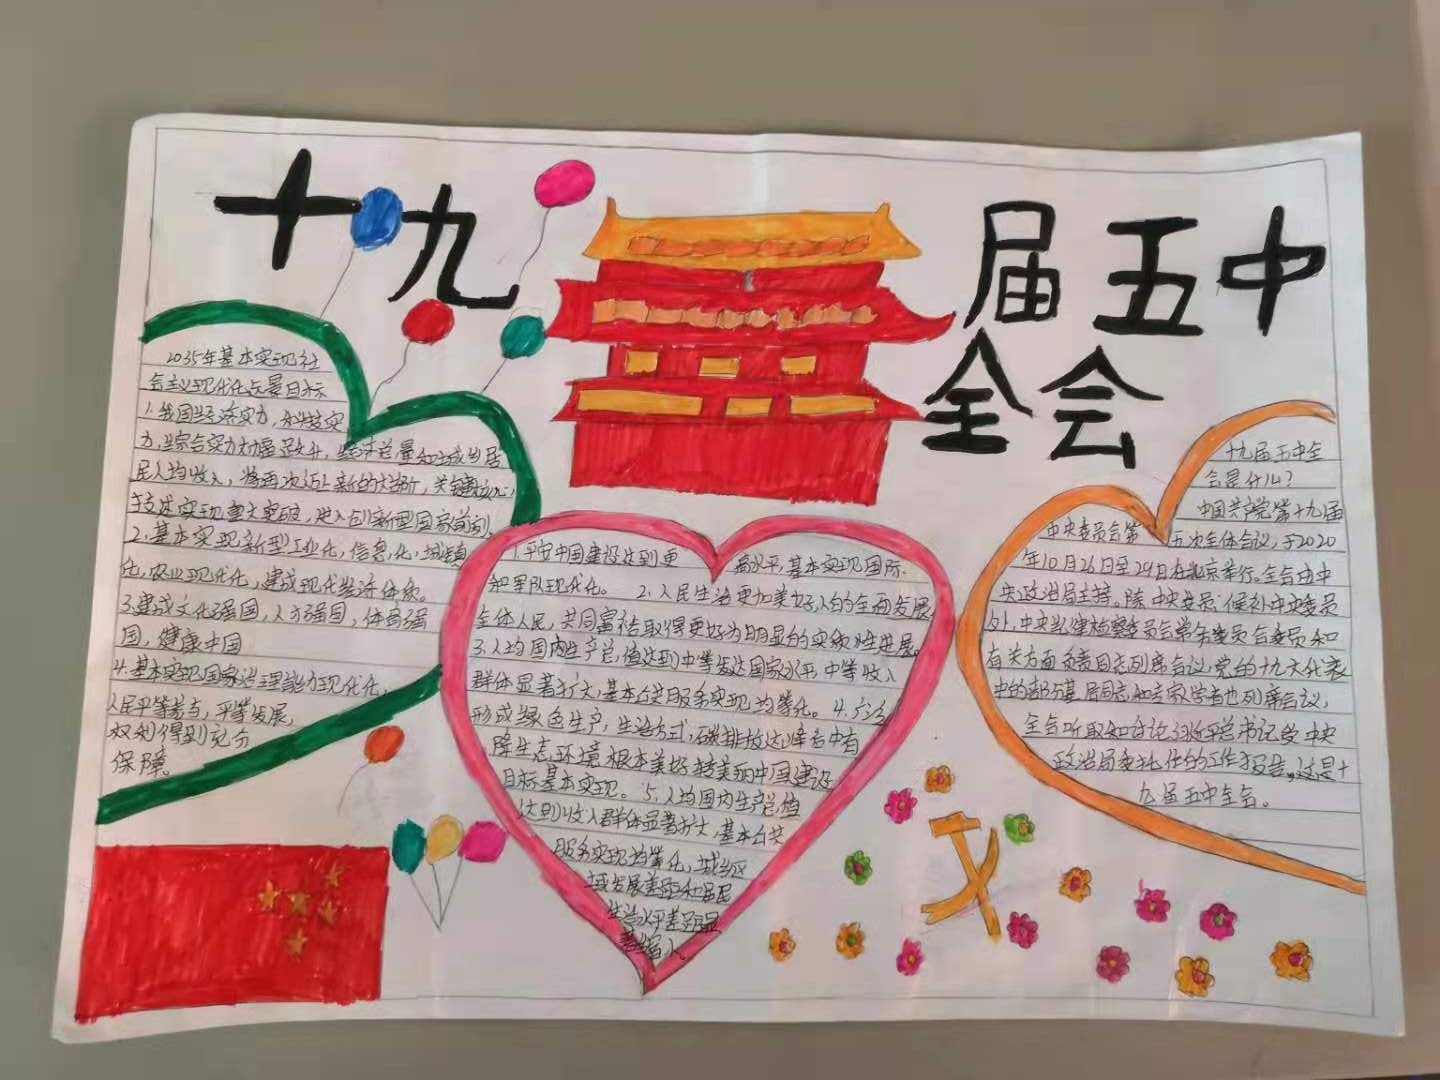 十九届五中
全会
2035年基本实现社
会主义现代化远景目标
1.我国经济实力,科技实
力,综合实力大幅跃升,经济总量和城乡居
民人均收入,将再次迈上新的大台阶,关键核心
技术实现重大突破,进入创新型国家前列。
2.基本实现新型工业化,信息化,城镇
化,农业现代化,建成现代经济体系。
3.建成文化强国,人才强国,体育强
国,健康中国
4.基本实现国家治理能力现代化,
人民平等参与,平等发展,
权利得到充分
保障。
1.平安中国建设达到更高水平,基本实现国防
和军队现代化。 2.人民生活更加美好,人的全面发展,
全体人民,共同富裕取得更好为明显的实质性进展。
3.人均国内生产总值达到中等发达国家水平中等收入
群体显著扩大,基本公共服务实现均等化。4.广泛
形成绿色生产,生活方式,碳排放达峰后中有
降生态环境根本美好转美丽中国建设
目标基本实现。5.人均国内生产总值
达到收入群体显著扩大,基本公共
服务实现均等化,城乡区
域发展差距和居民
生活水平差距显
著缩小。
十九届五中全
会是什么?
中国共产党第十九届
中央委员会第五次全体会议,于2020
年10月26日至29日在北京举行。全会由中
央政治局主持。除中央委员,候补中央委员
外,中央纪律检察委员会常务委员会委员和
有关方面负责同志列席会议,党的十九大代表
中的部分基层同志和专家学者也列席会议,
全会听取和讨论习近平总书记受中央
政治局委托作的工作报告。这是十
九届五中全会。